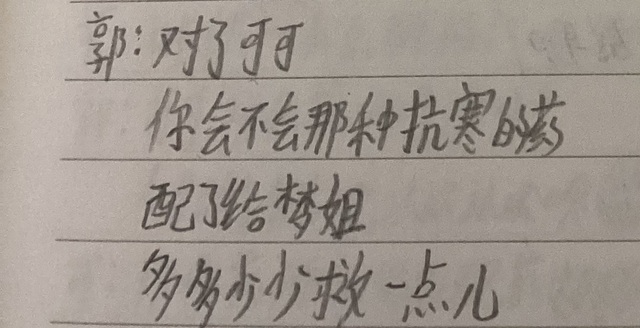 郭:对了可可
你会不会那种抗寒的药
配了给梦姐
多多少少救一点儿